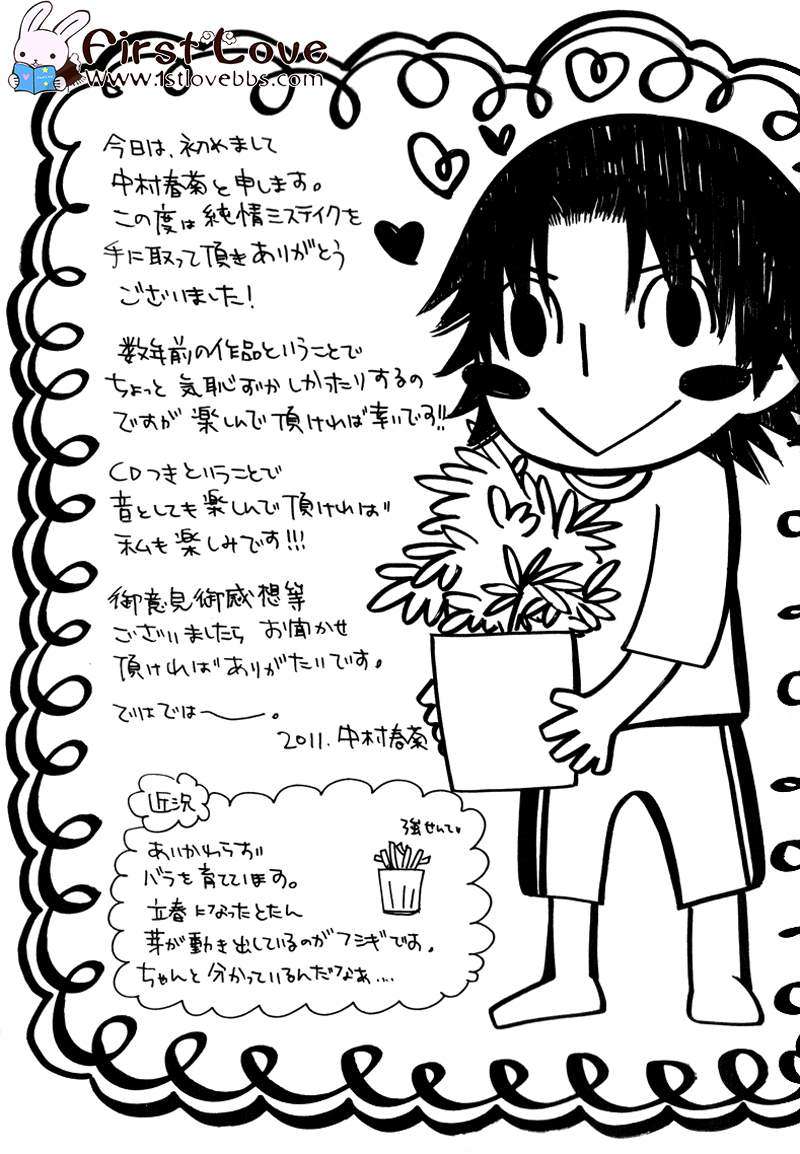 First Love
www.1stlovebbs.com
今日は、初めまして
中村春菊と申します。
この度は純情ミステイクを
手に取って頂きありがとう
ございました!
数年前の作品ということで
ちょっと気恥ずかしかったりするの
ですが楽しんで頂ければ幸いです!!
CDつきということで
音としても楽しんで頂ければ
私も楽しみです!!!
御意見御感想等
ございましたらお聞かせ
頂ければありがたいです。
ではでは〜。
2011.中村春菊
近況
強せんてい
あいかわらず
バラを育てています。
立春になったとたん
芽が動き出しているのがフシギです。
ちゃんと分かっているんだなぁ…